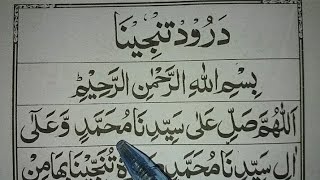 دَرُوْد تُنَجِّيْنَا
بِسْمِ اللهِ الرَّحْمٰنِ الرَّحِيْمِ
اَللّٰهُمَّ صَلِّ عَلٰى سَيِّدِنَا مُحَمَّدٍ وَّعَلٰٓى
اٰلِ سَيِّدِنَا مُحَمَّدٍ تُنَجِّيْنَا بِهَا مِنْ